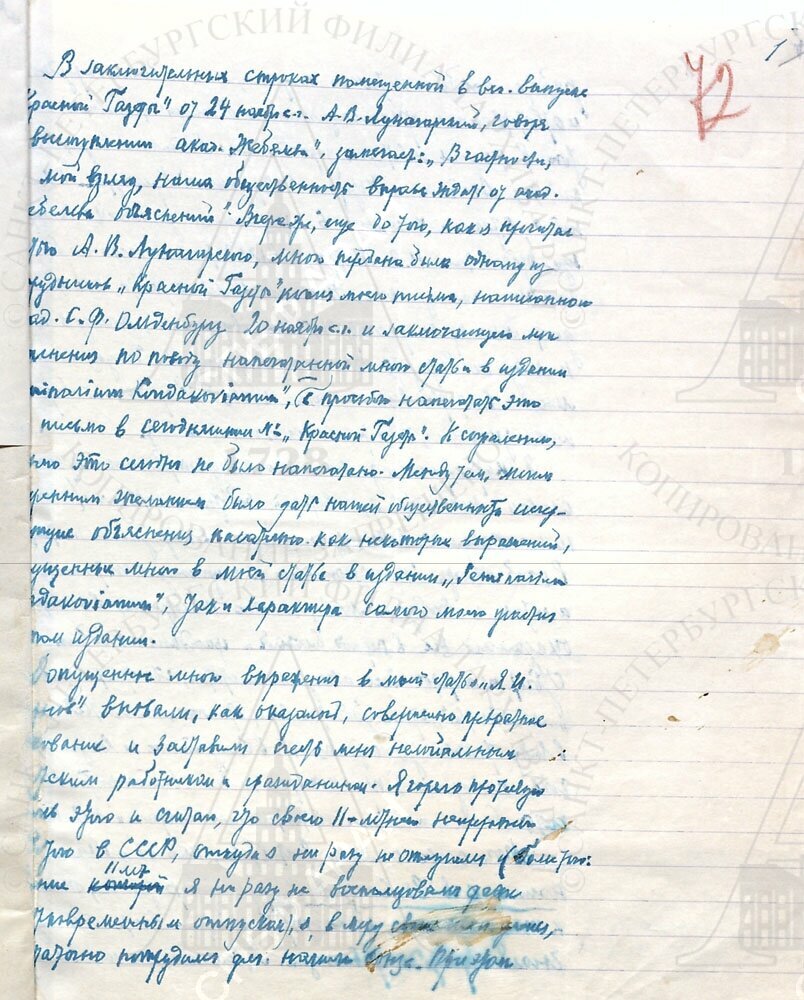 72
В заключительных строках помещенной в веч. выпуске
Красной Газеты" от 24 ноября с.г. А.В. Луначарский, говоря
выступлении акад. Жебелева", замечает: „В частности,
мой взгляд, наша общественность вправе ждать от акад.
ебелева объяснений". Вчера же, еще до того, как я прочитал
А.В. Луначарского, мною передана была одному из
трудников „Красной Газеты" копия моего письма, написанного
ад. С.Ф. Ольденбургу 20 ноября с.г. и заключающего мои
снения по поводу напечатанной мною статьи в издании
minarium Kondakovianum", с просьбой напечатать это
письмо в сегодняшнем № „Красной Газеты". К сожалению,
это сегодня не было напечатано. Между тем, моим
ренним желанием было дать нашей общественности
объяснения касательно как некоторых выражений,
ущенных мною в моей статье в издании „Seminarium
ndakovianum", так и характера самого моего участия
том издании.
Допущенные мною выражения в моей статье „Я.И.
нов" вызвали, как оказалось, совершенно превратное
кование и заставили счесть меня нелойяльным
тским работником и гражданином. Я горячо протестую
тив этого и считаю, что своею 11-летнею
в СССР, откуда я ни разу не отлучался (более того:
ние 11 лет я ни разу не воспользовался даже
овременным отпуском), я в меру
потрудился для нашего Союза. При этом